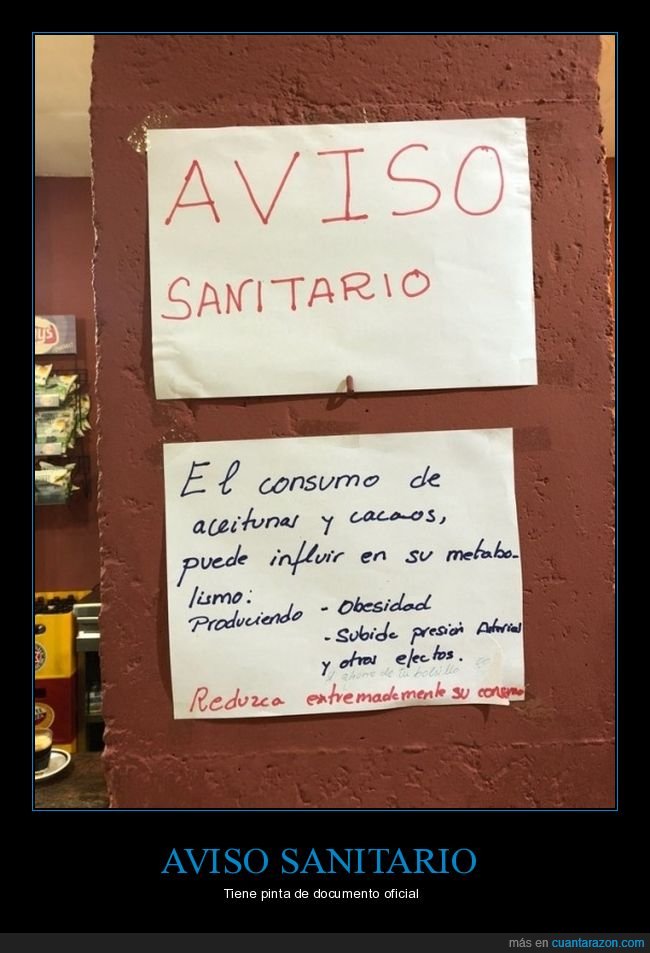 AVISO
SANITARIO
El consumo de
aceitunas y cacaos,
puede influir en su metabo-
lismo:
Produciendo - Obesidad
- Subida presión Arterial
y otros efectos.
y ahorro de tu bolsillo
Reduzca extremademente su consumo
AVISO SANITARIO
Tiene pinta de documento oficial
más en cuantarazon.com